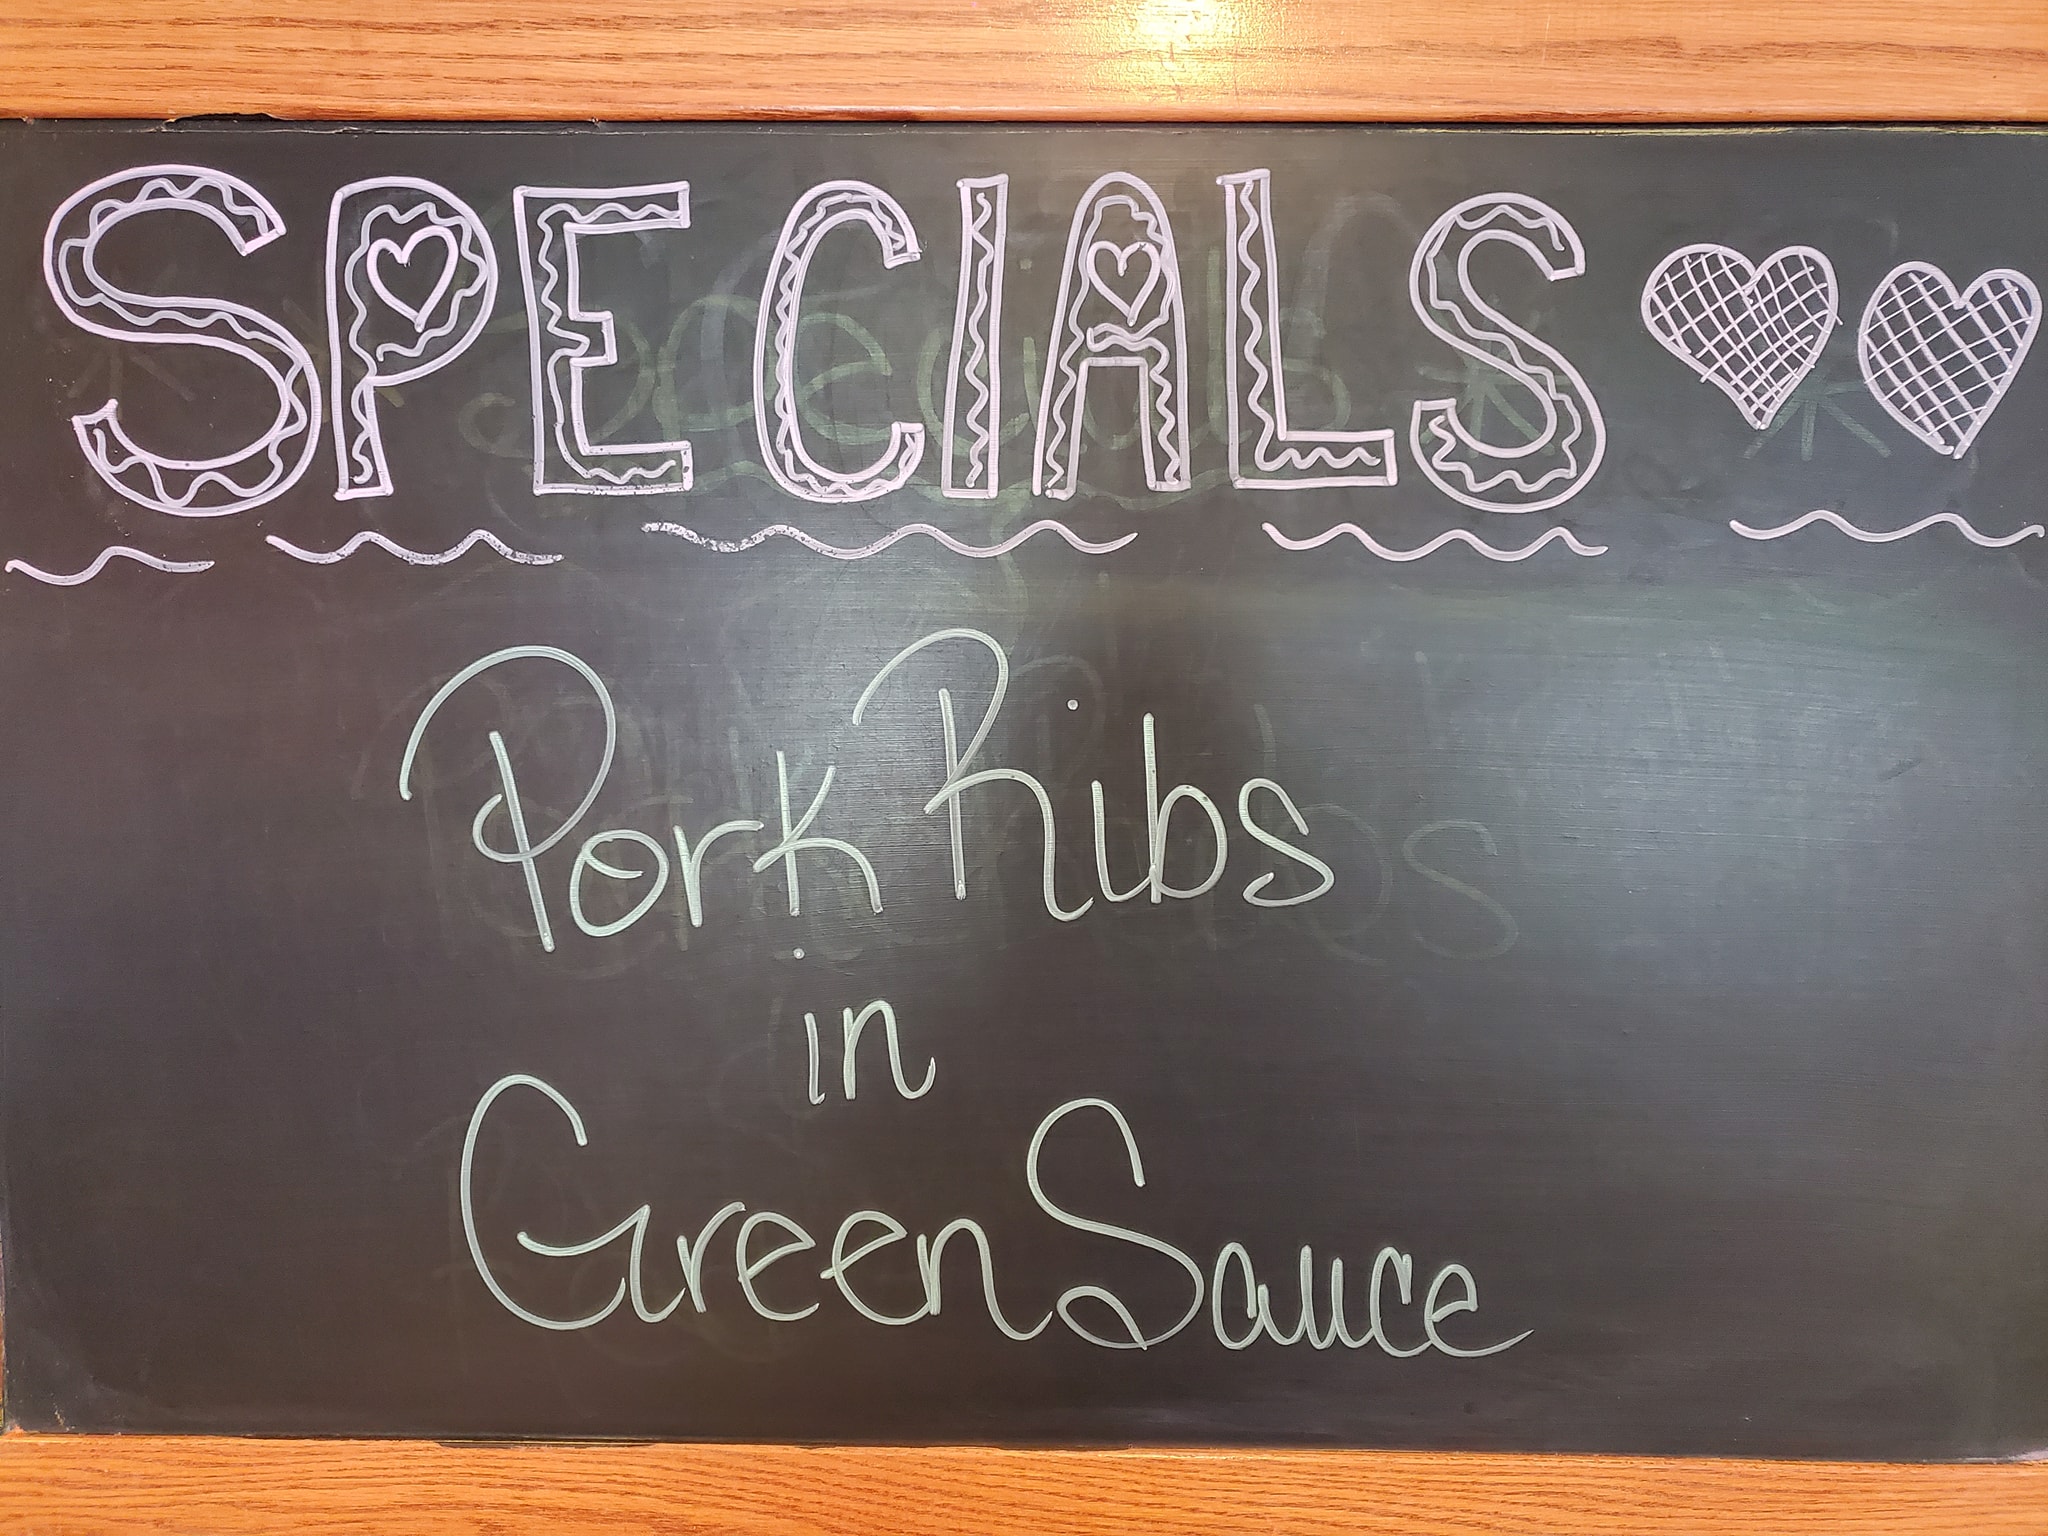 SPECIALS
Pork Ribs
in
Green Sauce